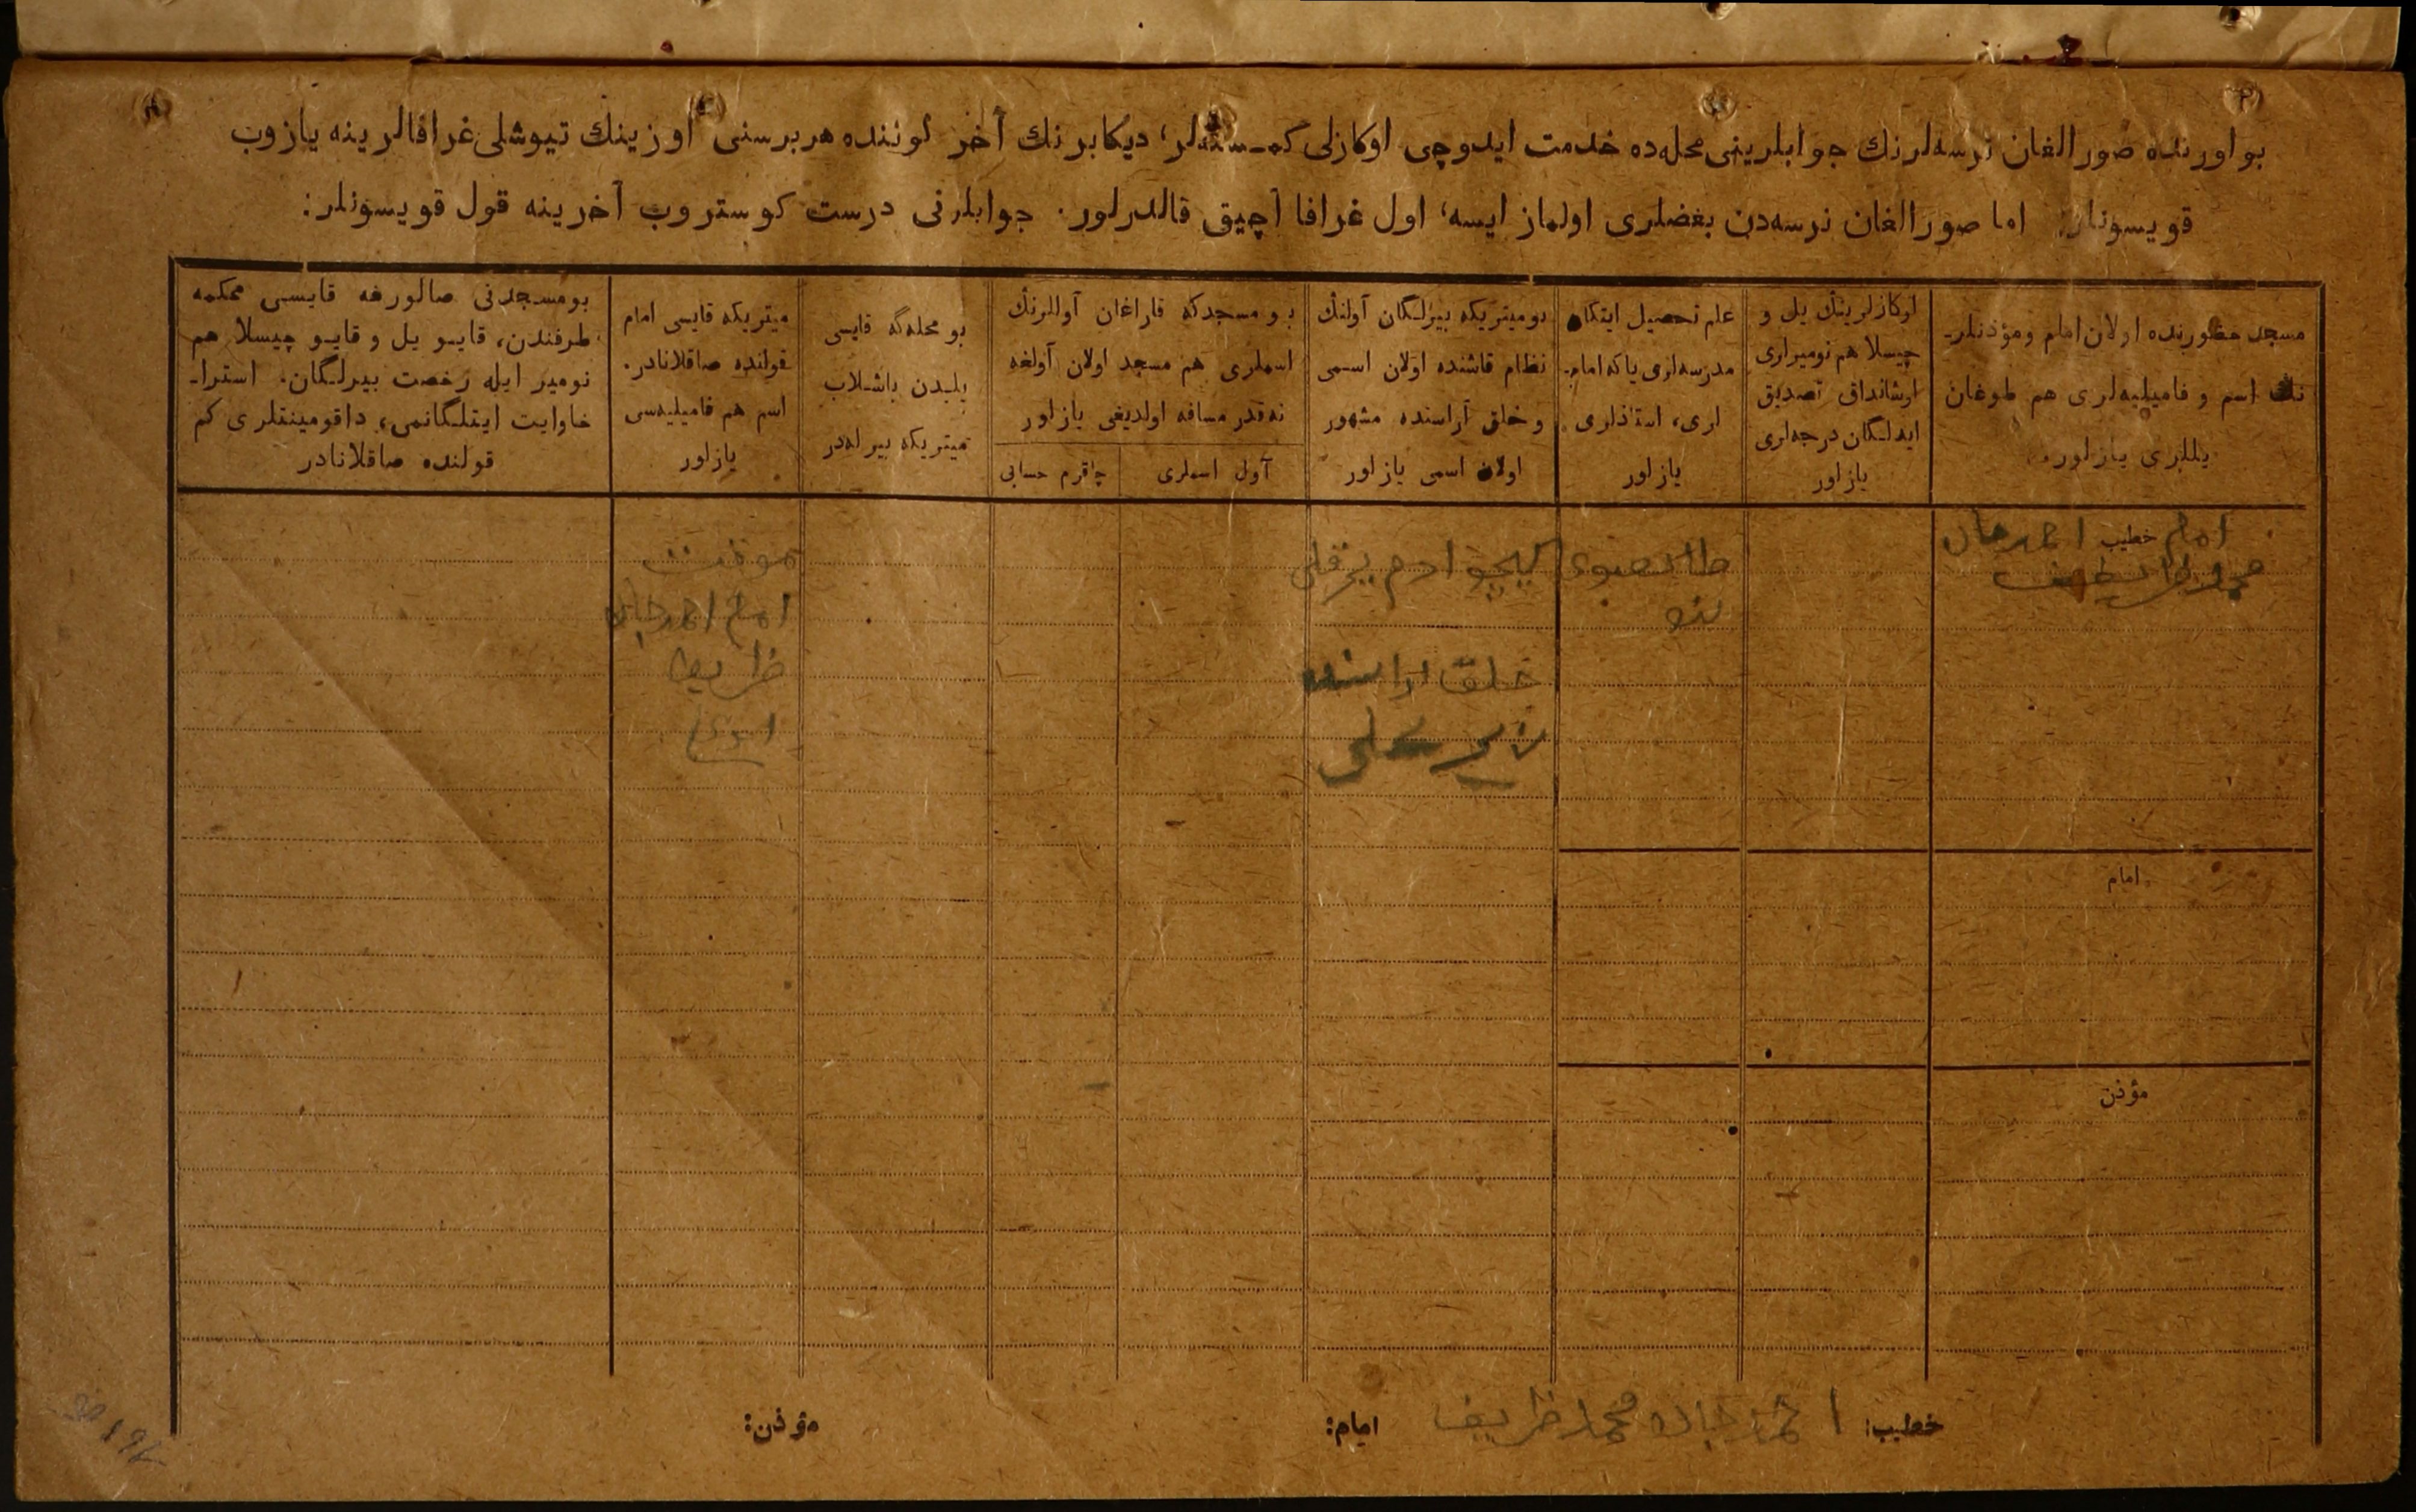 بو اورنده صورالغان نرسه‌لرنك جوابلرينى محله‌ده خدمت ايدوچى اوكازلى كمسنه‌لر، ديكابرنك آخر كوننده هر برسنى اوزينك تيوشلى غرافالرينه يازوب
قويسونلر. اما صورالغان نرسه‌دن بعضلرى اولماز ايسه، اول غرافا آچيق قالدرلور. جوابلرنى درست كوستروب آخرينه قول قويسونلر:
مسجد حضورنده اولان امام و مؤذنلر-
نك اسم و فاميليه‌لرى هم طوغان
يللرى يازلور.
اوكازلرينك يل و
چيسلا هم نوميرلرى
اوشانداق تصديق
ايدلگان درجه‌لرى
يازلور
علم تحصيل ايتكان
مدرسه‌لرى ياكه امام-
لرى، استاذلرى
يازلور
بو ميتريكه بيرلگان آولنك
نظام قاشنده اولان اسمى
و خلق آراسنده مشهور
اولان اسمى يازلور
بو مسجدكه قاراغان آوللرنك
اسملرى هم مسجد اولان آولغه
نه قدر مسافه اولديغى يازلور
آول اسملرى
چاقرم حسابى
بو محله‌گه قايسى
يلدن باشلاب
ميتريكه بيرله‌در
ميتريكه قايسى امام
قولنده صاقلانادر.
اسم هم فاميليه‌سى
يازلور
بو مسجدنى صالورغه قايسى محكمه
طرفندن، قايو يل و قايو چيسلا هم
نومير ايله رخصت بيرلگان. استرا-
خاوايت ايتلگانمى، داقومينتلرى كم
قولنده صاقلانادر
امام خطيب احمدجان
خلق اراسنده
امام احمدجان
ظريف
امام
مؤذن
خطيب: احمدجان محمدظريف
امام:
مؤذن: